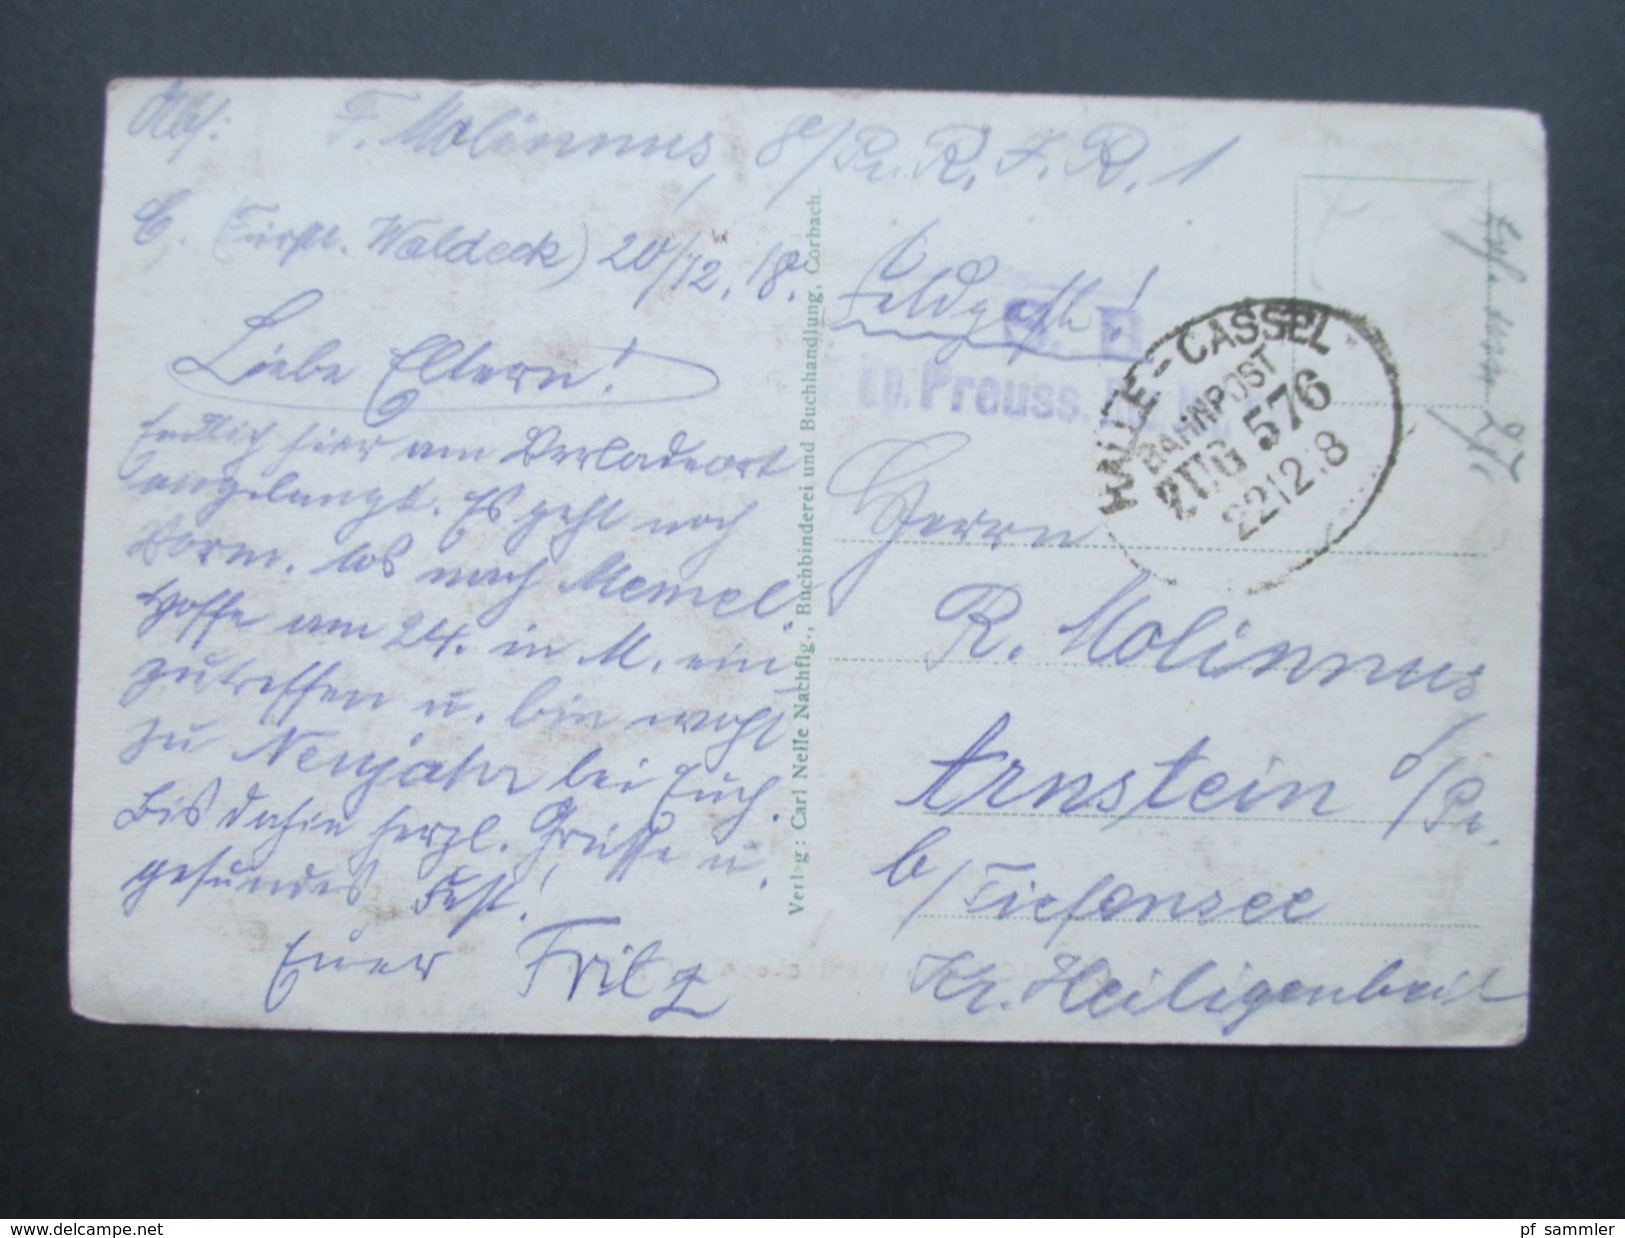 Abs: F. Molinnus, 8./Pr. R. I. R. 1
C. (Fürstt. Waldeck) 20/12. 18.
Liebe Eltern!
Endlich hier am Verladeort
angelangt. Es geht noch
Vorm. los nach Memel.
Hoffe am 24. in M. ein-
zutreffen u. bin wohl
zu Neujahr bei Euch.
Bis dahin herzl. Grüsse u.
gesundes Fest!
Euer Fritz
Verlag: Carl Nelle Nachflg., Buchbinderei und Buchhandlung, Corbach.
Feldpost!
S. B.
Preuss.
HALLE - CASSEL
BAHNPOST
ZUG 576
221218
Herrn
R. Molinnus
Arnstein
b/Tiefensee
Kr. Heiligenbeil
http://www.delcampe.net
pf_sammler